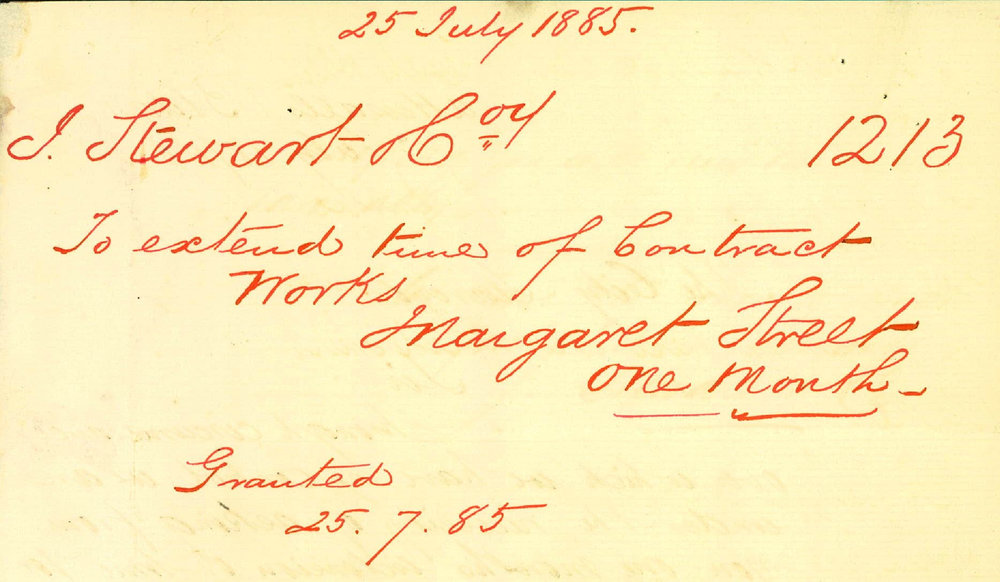 25 July 1885.
J. Stewart & Coy 1213
To extend time of Contract
Works
Margaret Street
One Month
Granted
25. 7. 85